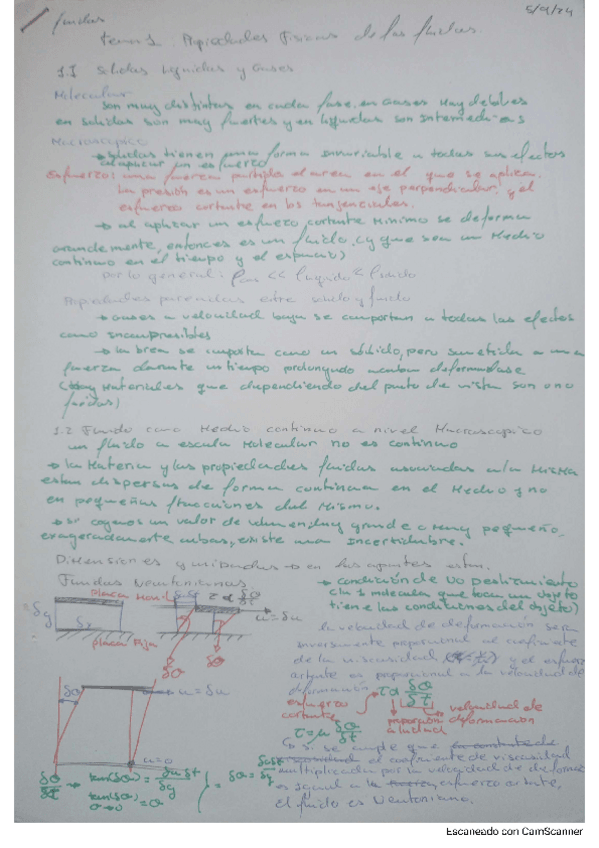 fluidos
5/9/24
Tema 1. Propiedades Físicas de los fluidos.
1.1 Solidos líquidos y Gases
Molecular
son muy distintas en cada fase, en Gases Hay debiles
en solidos son muy fuertes y en liquidos son intermedios
Macroscópico
→ solidos tienen una forma invariable a todos sus efectos
al aplicar un esfuerzo
Esfuerzo: una fuerza partido el area en el que se aplica.
La presión es un esfuerzo en un eje perpendicular y el
esfuerzo cortante en los tangenciales.
→ al aplicar un esfuerzo cortante minimo se deforma
grandemente, entonces es un fluido, (y que sea un Medio
continuo en el tiempo y el espacio)
por lo general: Gas << liquido fluido
Propiedades parecidas entre solido y fluido
→ Gases a velocidad baja se comportan a todos los efectos
como incompresibles
→ la brea se comporta como un sólido, pero sometida a una
fuerza durante un tiempo prolongado acaba deformandose
(Hay Materiales que dependiendo del punto de vista son o no
fluidos)
1.2 Fluido como Medio continuo a nivel Macroscopico
un fluido a escala Molecular no es continuo
→ la Materia y las propiedades fluidas asociadas a la Misma
estan dispersas de forma continua en el Medio y no
en pequeñas fracciones del Mismo.
→ si cogemos un valor de volumen muy grande o muy pequeño,
exageradamente ambos, existe una incertidumbre.
Dimensiones y unidades → en los apuntes estan.
Fluidos Newtonianos
placa Movil
τ α δθ/δt
δy
δx
u = δu
placa Fija
δθ
δθ
δa
u = δu
u = 0
δθ/δt → tan(δθ) = δu δt/δy
tan(δθ) = θ
θ→0
δθ = δu δt/δy
→ condición de no Deslizamiento
(la 1 molecula que toca un objeto
tiene las condiciones del objeto)
la velocidad de deformación sera
inversamente proporcional al coeficiente
de la viscosidad, y el esfuerzo
cortante es proporcional a la velocidad de
deformación
τ α δθ/δt
esfuerzo cortante
proporcional
velocidad de deformación
τ = μ δθ/δt
si se cumple que
el coeficiente de viscosidad
multiplicado por la velocidad de deformación
es igual a la esfuerzo cortante,
el fluido es Newtoniano.
Escaneado con CamScanner